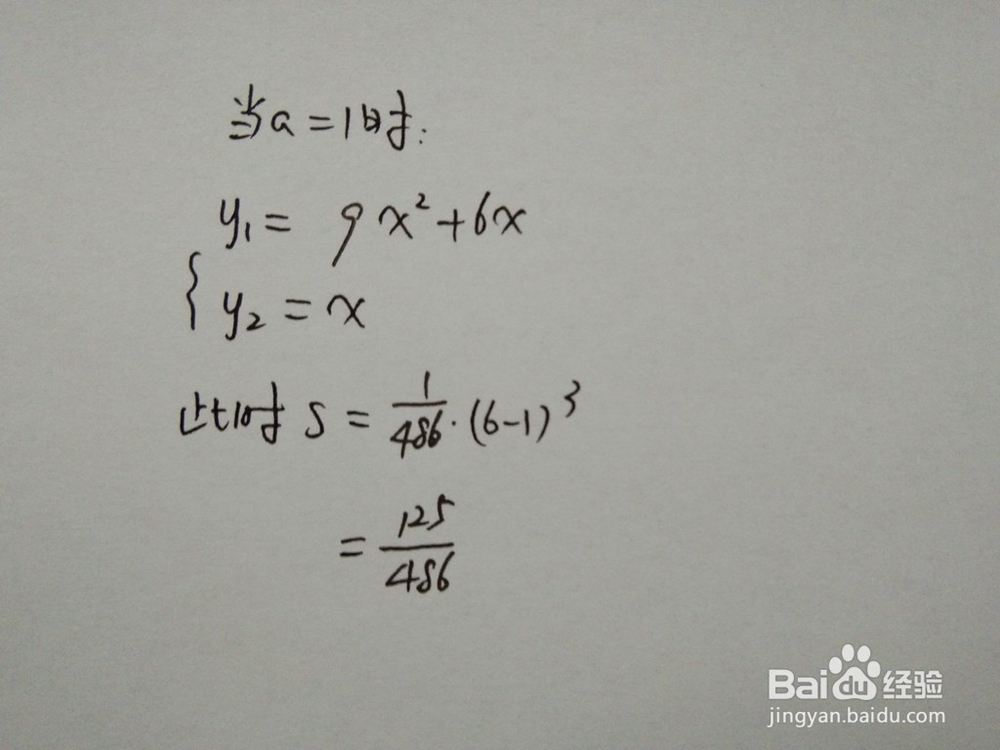 当a=1时:
y₁= 9x²+6x
{ y₂=x
此时 S = 1/486 · (6-1)³
= 125/486
Baidu 经验
jingyan.baidu.com